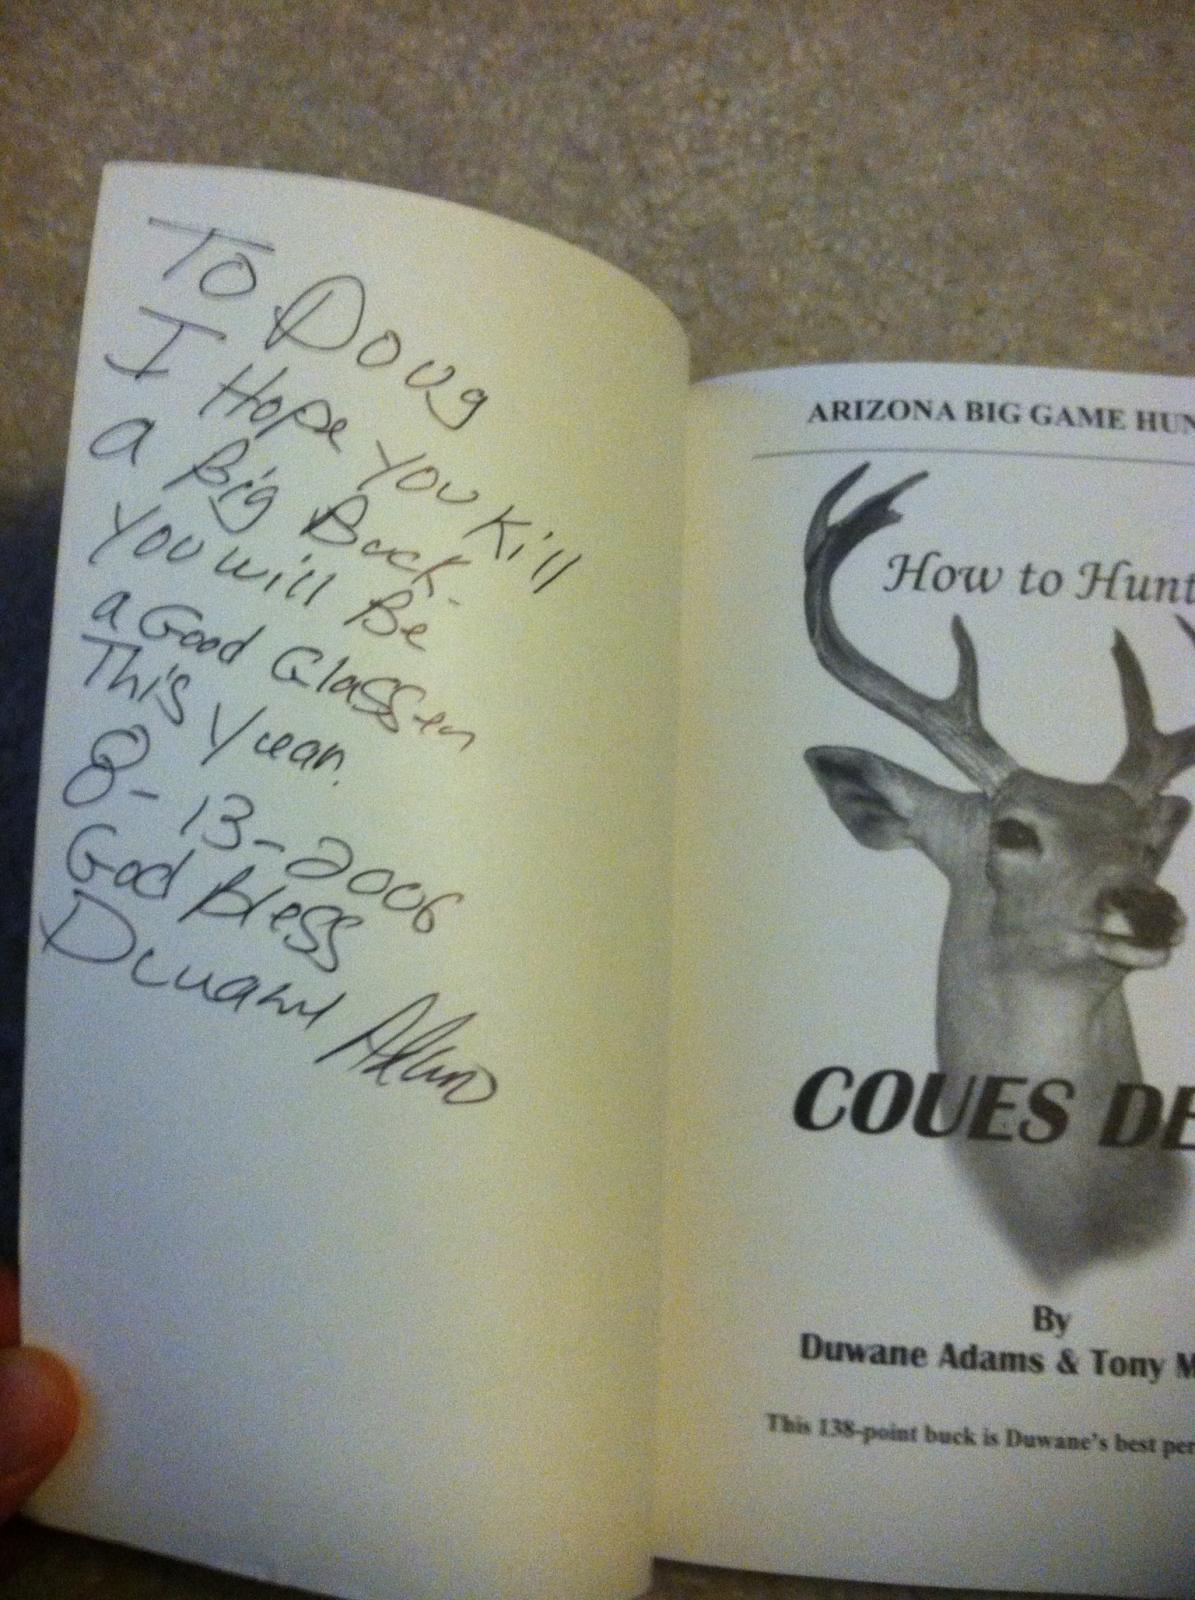 To Doug
I Hope You Kill
a Big Buck.
You will Be
a Good Glasser
This Year.
8-13-2006
God Bless
Duwane Adams
ARIZONA BIG GAME HUN
How to Hunt
COUES DE
By
Duwane Adams & Tony M
This 138-point buck is Duwane's best per